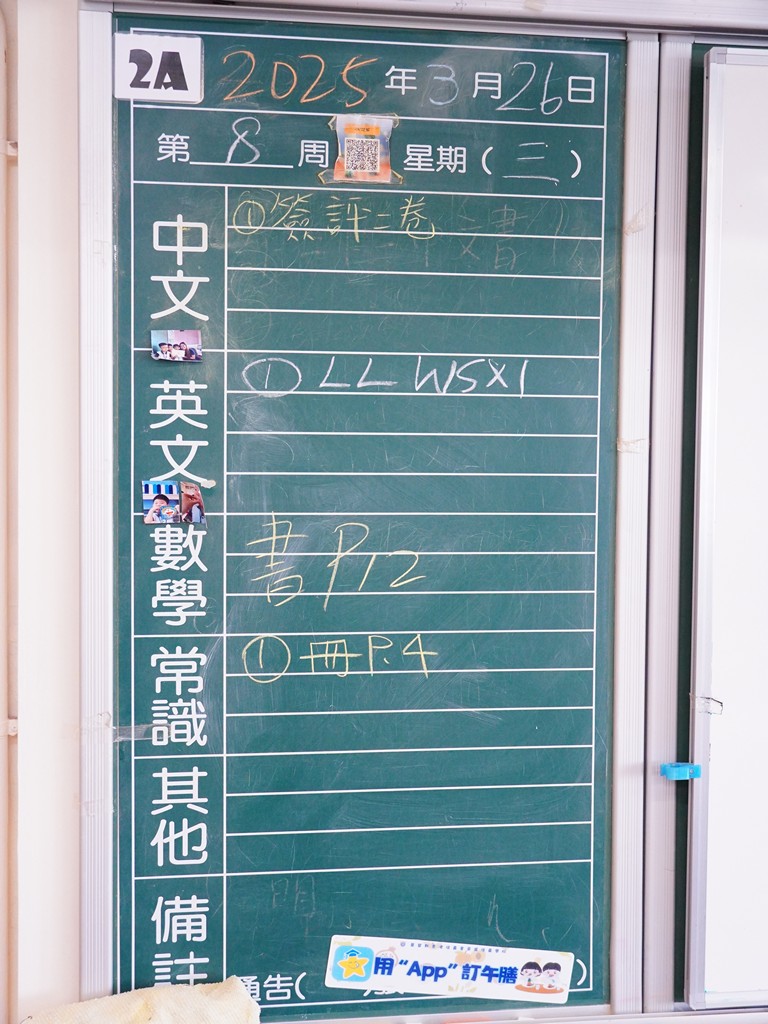 2A 2025年3月26日
第8周 星期(三)
中文 ①簽評二卷
英文 ① LL WS×1
數學 書P12
常識 ①冊P.4
其他
備註
通告(
用“App”訂午膳
)